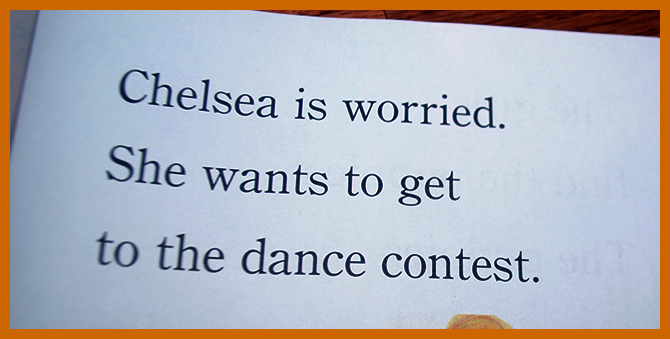 Chelsea is worried.
She wants to get
to the dance contest.